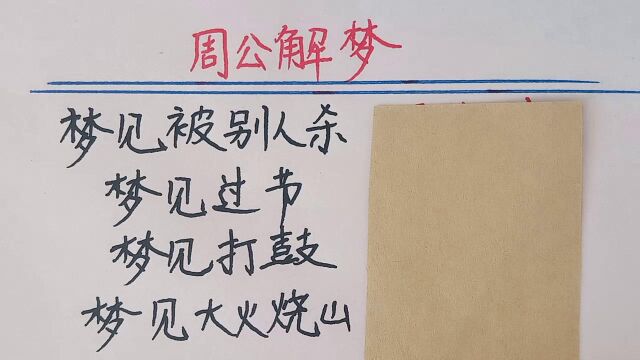 周公解梦
梦见被别人杀
梦见过节
梦见打鼓
梦见大火烧山